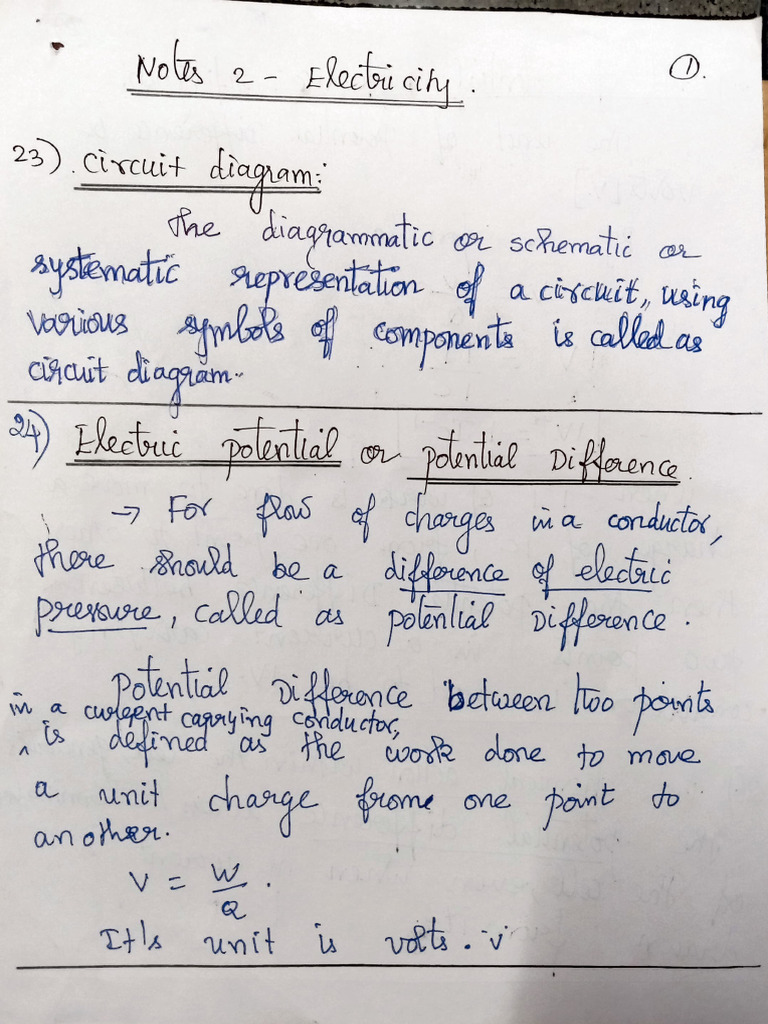 Notes 2 - Electricity.
①.
23). circuit diagram:
the diagrammatic or schematic or
systematic representation of a circuit,, using
various symbols of components is called as
circuit diagram..
24) Electric potential or potential Difference.
→ For flow of charges in a conductor,
there should be a difference of electric
pressure, called as potential Difference.
Potential Difference between two points
in a current carrying conductor,
^ is defined as the work done to move
a unit charge frome one point to
another.
V = W/Q.
It's unit is volts. V